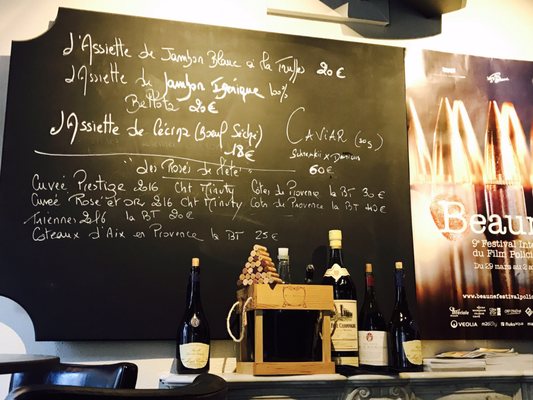 d'Assiette de Jambon Blanc à la Truffes 20€
d'Assiette de Jambon Iberique 100%
Bellota 20€
d'Assiette de Cécina (Boeuf Séché)
18€
CAVIAR (30g)
Schrenkii x Dauricus
60€
"des Rosés de l'été"
Cuveé Prestige 2016 Cht Minuty Côtes de Provence la BT 30€
Cuveé Rose et or 2016 Cht Minuty Côtes de Provence la BT 40€
Triennes 2016 la BT 20€
Coteaux d'Aix en Provence la BT 25€
Beaune
9e Festival Inte
du Film Policier
Du 29 mars au 2 a
www.beaunefestivalpolic
VEOLIA